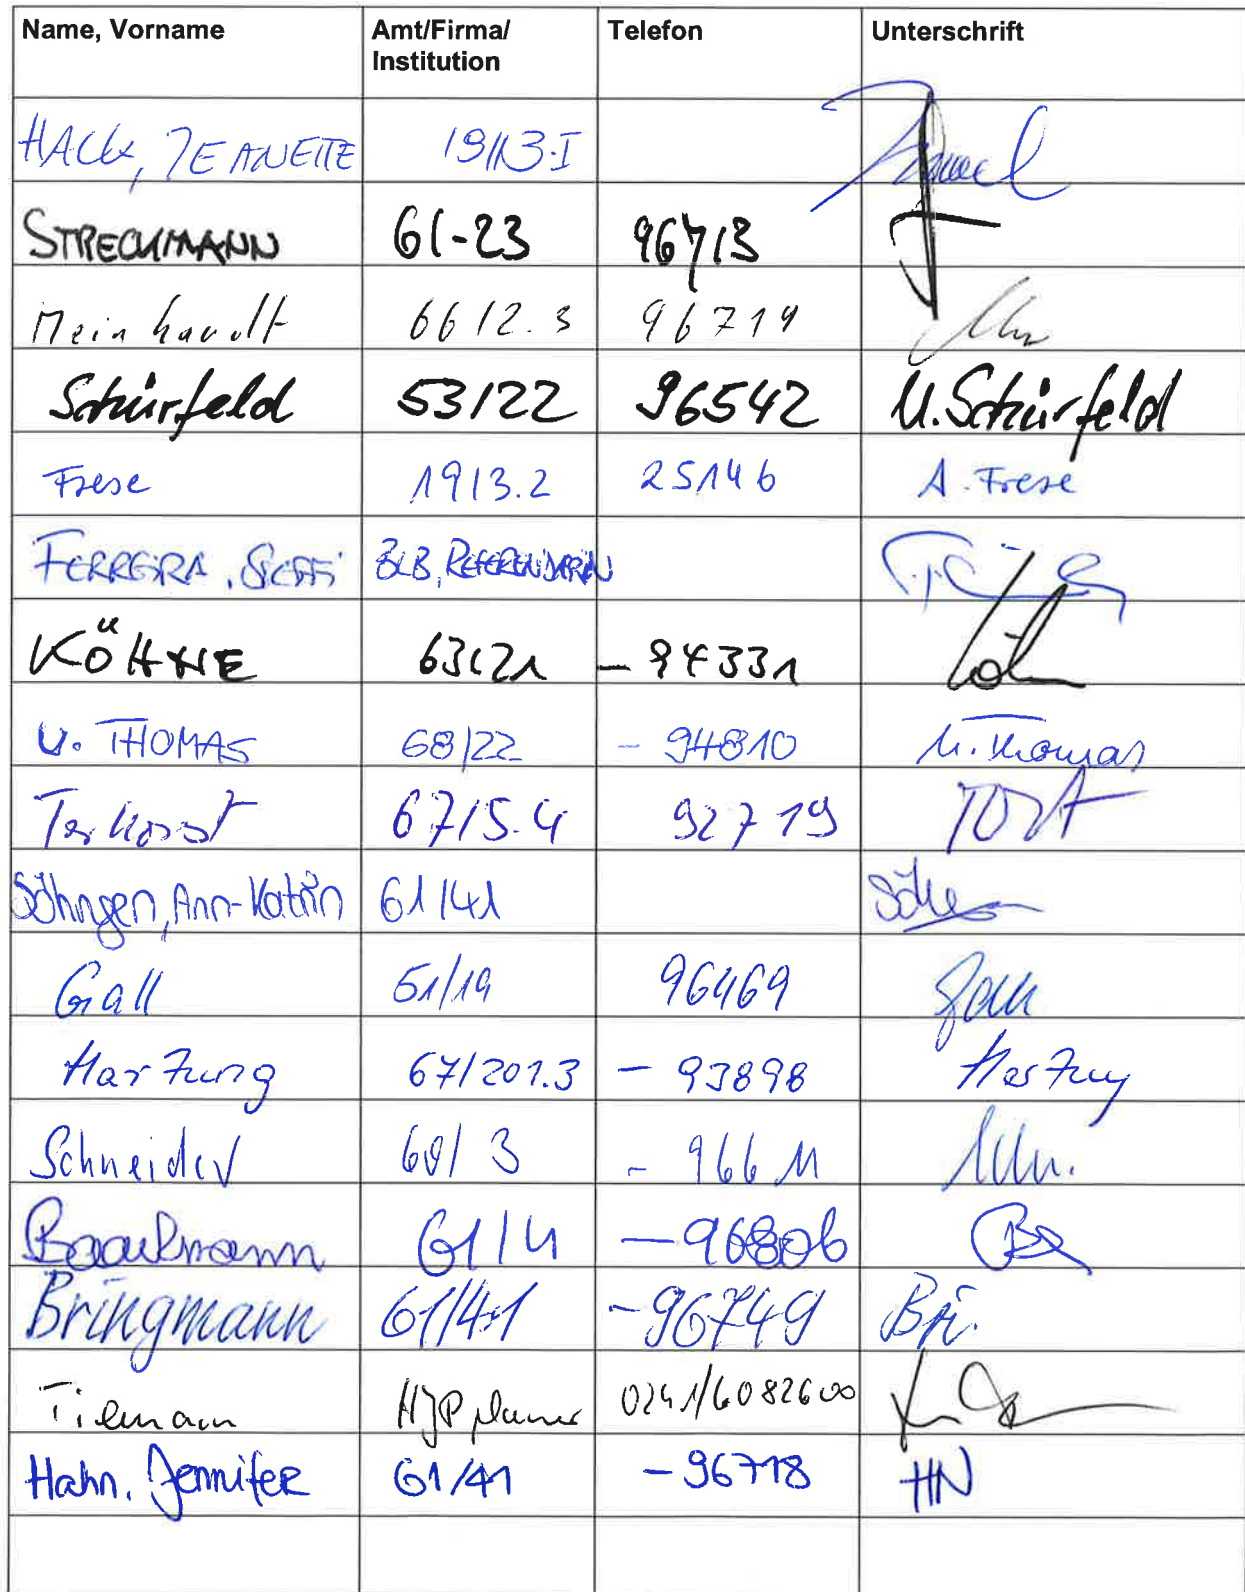 Name, Vorname Amt/Firma/ Institution Telefon Unterschrift
HACK, JEANETTE 19/13.I
STRECKMANN 61-23 96713
Meinhardt 66/2.3 96719
Schürfeld 53/22 96542 U. Schürfeld
Frese 19/3.2 25146 A. Frese
FERREIRA, STEFFI BLB, REFERENDARIN
KÖHNE 63/21 - 94331
U. THOMAS 68/22 - 94810 U. Thomas
Terhorst 67/5.4 92719
Söhngen, Ann-Katrin 61/41
Gall 51/19 96469 Gall
Hartung 67/201.3 - 93898 Hartung
Schneider 60/3 - 96611 Schn.
61/4 - 96806
Bringmann 61/4.1 - 96749 Bri.
Tilmann HJPplaner 0241/6082600
Hahn, Jennifer 61/41 - 96718 HN